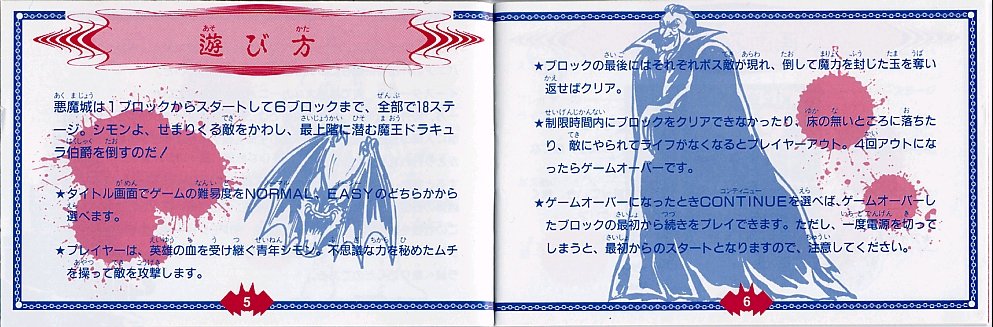 遊び方
悪魔城は1ブロックからスタートして6ブロックまで、全部で18ステ
ージ。シモンよ、せまりくる敵をかわし、最上階に潜む魔王ドラキュ
ラ伯爵を倒すのだ!
★タイトル画面でゲームの難易度をNORMAL、EASYのどちらかから
選べます。
★プレイヤーは、英雄の血を受け継ぐ青年シモン。不思議な力を秘めたムチ
を操って敵を攻撃します。
5
★ブロックの最後にはそれぞれボス敵が現れ、倒して魔力を封じた玉を奪い
返せばクリア。
★制限時間内にブロックをクリアできなかったり、床の無いところに落ちた
り、敵にやられてライフがなくなるとプレイヤーアウト。4回アウトにな
ったらゲームオーバーです。
★ゲームオーバーになったときCONTINUEを選べば、ゲームオーバーし
たブロックの最初から続きをプレイできます。ただし、一度電源を切って
しまうと、最初からのスタートとなりますので、注意してください。
6